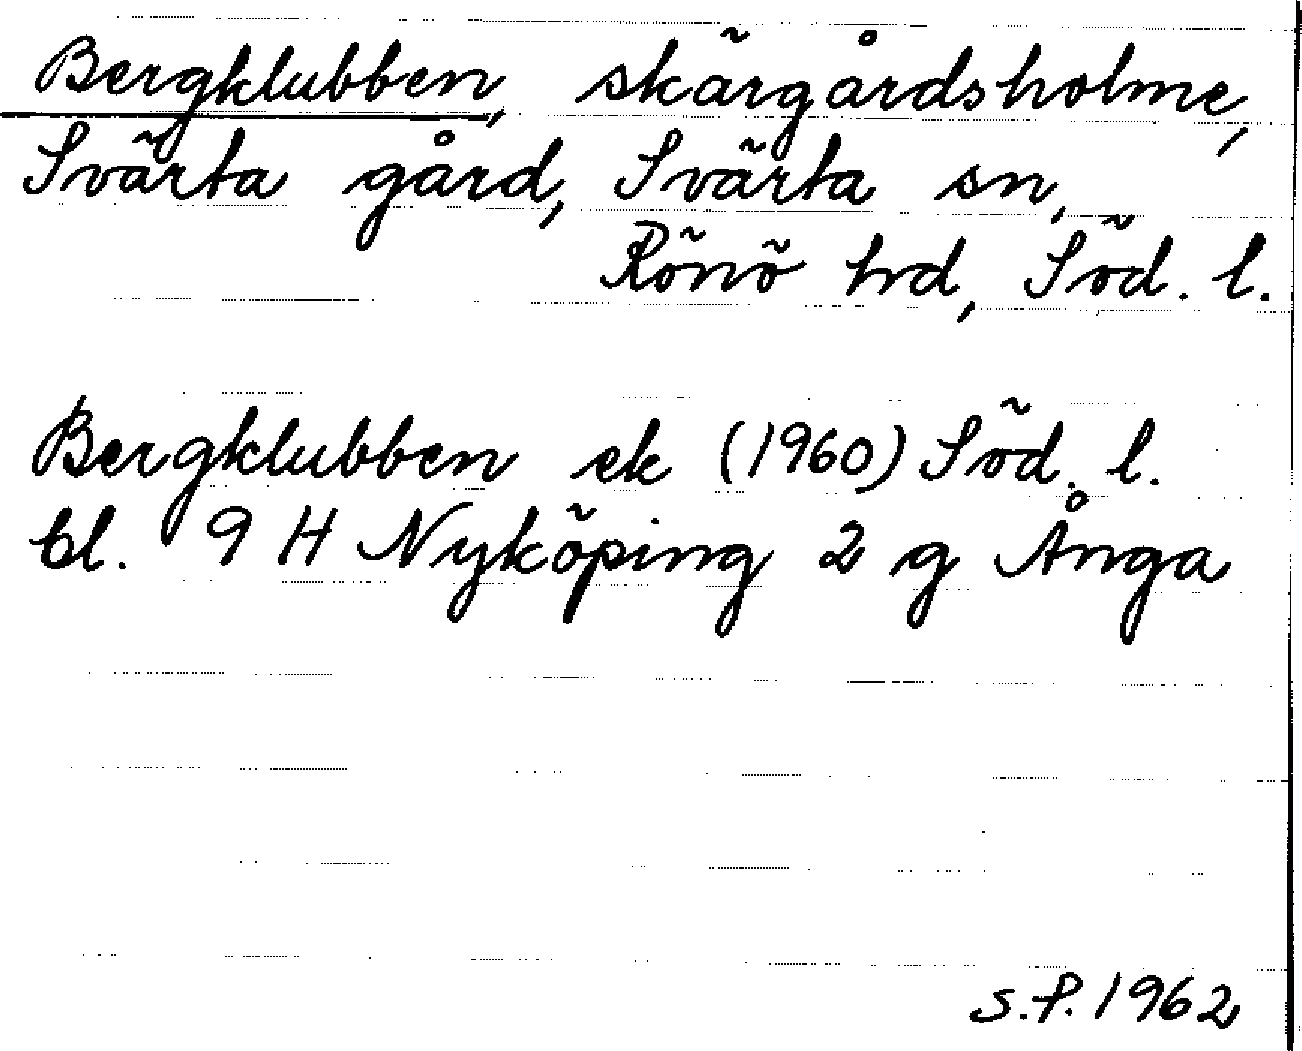 Bergklubben, skärgårdsholme,
Svärta gård, Svärta sn,
Rönö hrd, Söd. l.
Bergklubben ek (1960) Söd. l.
bl. 9 H Nyköping 2 g Ånga
S.P. 1962